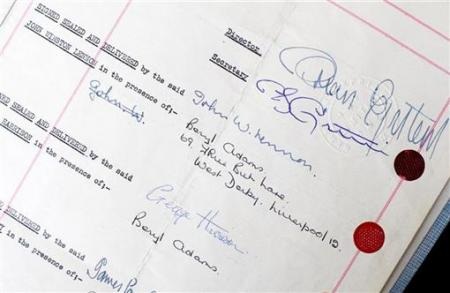 SIGNED SEALED AND DELIVERED by the said
JOHN WINSTON LENNON in the presence of;-
Director
Secretary
John W. Lennon.
Beryl Adams.
69
Lane.
West Derby, Liverpool 12.
SEALED AND DELIVERED by the said
HARRISON in the presence of;-
George Harrison
Beryl Adams.
DELIVERED by the said
in the presence of;-
James